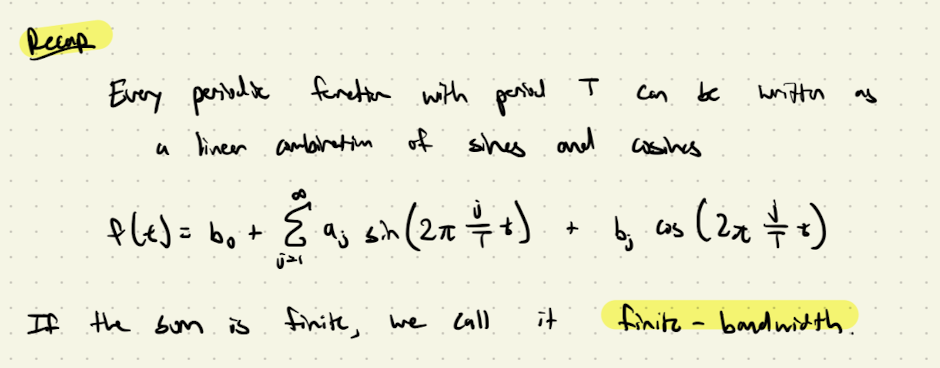 Recap
Every periodic function with period T can be written as
a linear combination of sines and cosines
f(t) = b₀ + ∑_{j=1}^{∞} a_j sin(2π j/T t) + b_j cos(2π j/T t)
If the sum is finite, we call it finite-bandwidth.